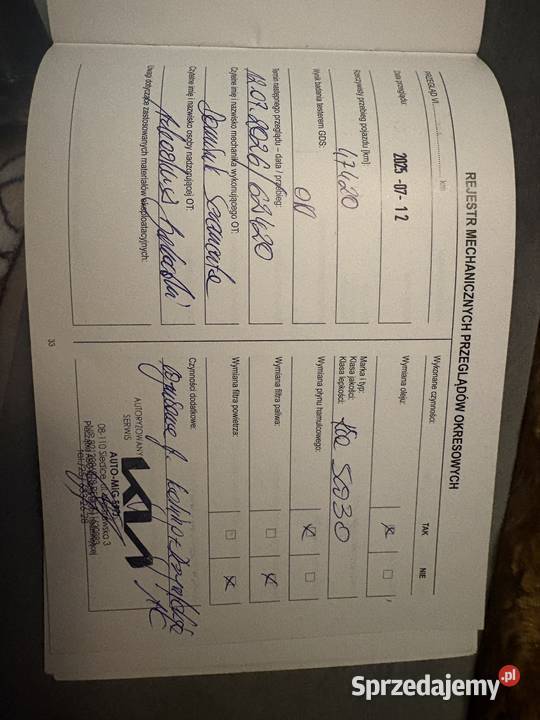 REJESTR MECHANICZNYCH PRZEGLĄDÓW OKRESOWYCH
PRZEGLĄD VI km
Data przeglądu: 2025-07-12
Rzeczywisty przebieg pojazdu [km]: 47420
Wynik badania testerem GDS: OK
Termin następnego przeglądu – data / przebieg:
12.07.2026/62420
Czytelne imię i nazwisko mechanika wykonującego OT:
Dominik
Czytelne imię i nazwisko osoby nadzorującej OT:
Uwagi dotyczące zastosowanych materiałów eksploatacyjnych:
33
Wykonane czynności: TAK NIE
Wymiana oleju: x
Marka i typ: Kia
Klasa jakości: 5W30
Klasa lepkości:
Wymiana płynu hamulcowego: x
Wymiana filtra paliwa: x
Wymiana filtra powietrza: x
Czynności dodatkowe:
AUTORYZOWANY
SERWIS
KIA
AUTO-MIG
08-110 Siedlce
Sprzedajemy.pl